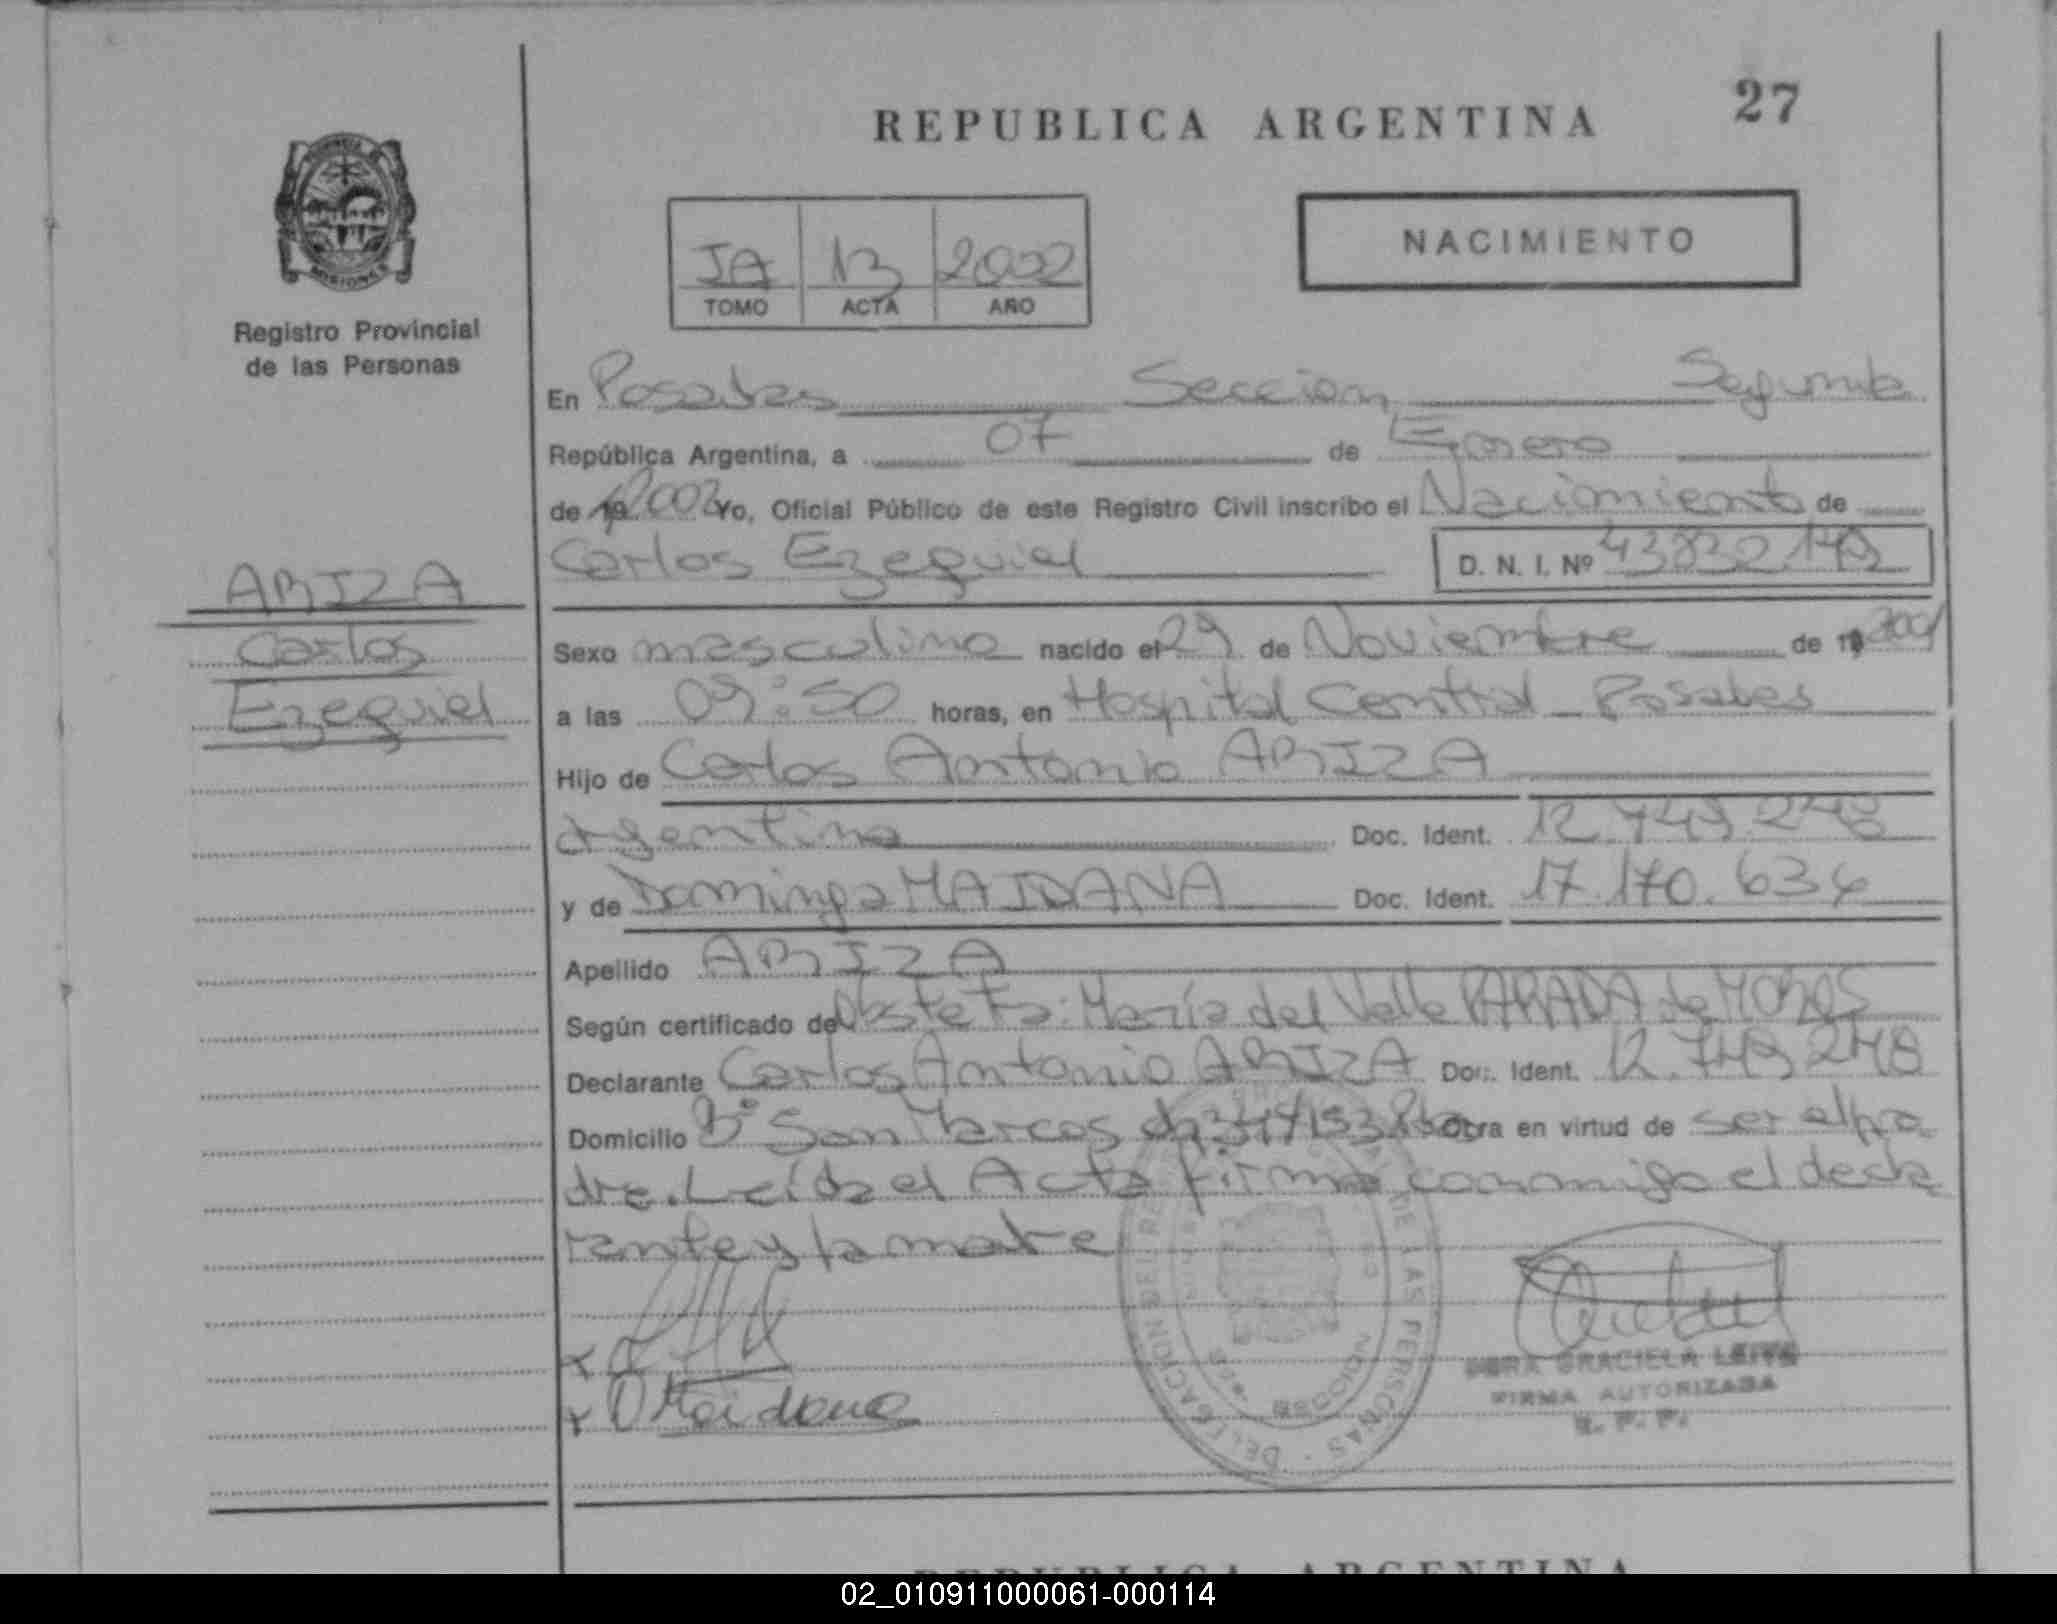 27
REPUBLICA ARGENTINA
NACIMIENTO
IA 13 2002
TOMO ACTA AÑO
Registro Provincial
de las Personas
En Posadas Seccion Segunda
República Argentina, a 07 de Enero
de 19 2002 Yo, Oficial Público de este Registro Civil inscribo el Nacimiento de
Carlos Ezequiel D. N. I. Nº
ARIZA
Carlos
Ezequiel
Sexo masculino nacido el 29 de Noviembre de 2001
a las 09:50 horas, en Hospital Central - Posadas
Hijo de Carlos Antonio ARIZA
argentino Doc. Ident. 12.749.248
y de Dominga MAIDANA Doc. Ident. 17.170.634
Apellido ARIZA
Según certificado de Obstetra: María del Valle PARADA de
Declarante Carlos Antonio ARIZA Doc. Ident. 12.749.248
Domicilio Bº San Marcos Otra en virtud de ser el pa
dre. Leída el Acta firma conmigo el decla
rante y la madre
x
x D Maidana
DELEGACION DEL REGISTRO PROVINCIAL DE LAS PERSONAS
MISIONES
GRACIELA LEITE
FIRMA AUTORIZADA
R. P. P.
REPUBLICA ARGENTINA
02_010911000061-000114